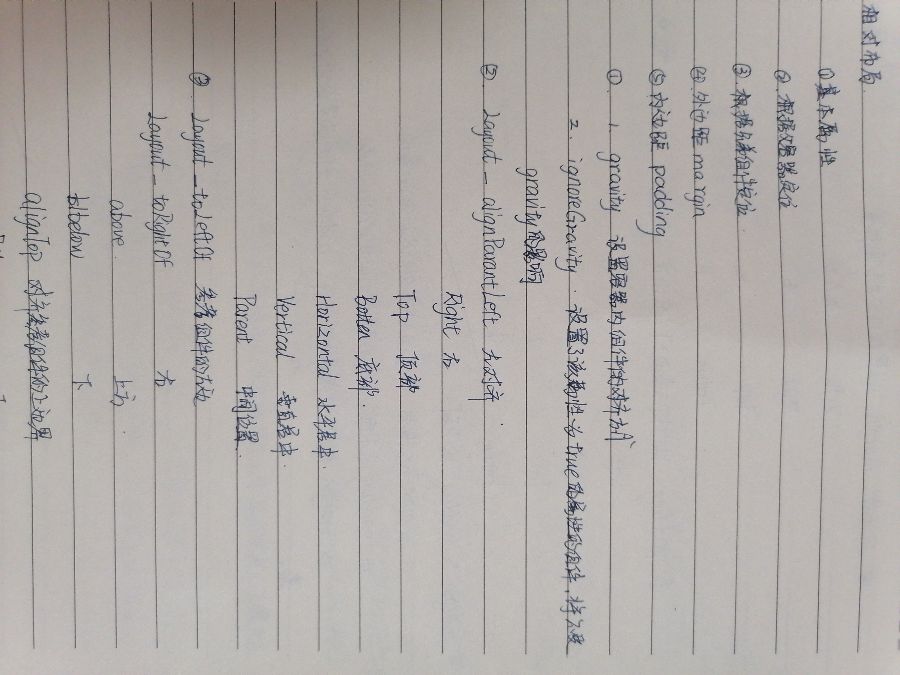 相对布局.
① 基本属性
②. 根据父容器定位
③. 根据兄弟组件定位
④ 外边距 margin
⑤ 内边距 padding
①. 1. gravity 设置容器内组件的对齐方式
2. ignoreGravity. 设置了该属性为true的属性的组件,将不受
gravity的影响
②. Layout_alignParantLeft 左对齐
Right 右
Top 顶部
Botten 底部.
Horizontal 水平居中.
Vertical 垂直居中.
Parent 中间位置.
③. Layout_toLeftOf 参考组件的左边
Layout_toRightOf 右
above. 上方.
below 下
alignTop 对齐参考组件的上边界